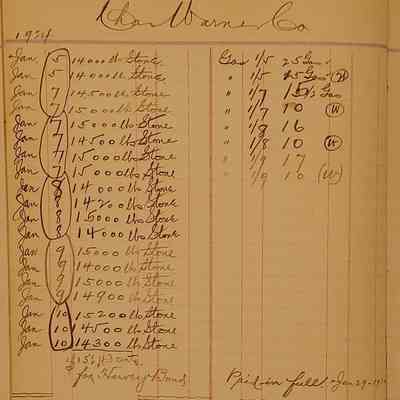 Chas Warner Co
1924
Jan 5 14000 lb Stone Gas 1/5 25 Gas
Jan 5 14000 lb Stone " 1/5 15 Gas (W)
Jan 7 14500 lb Stone " 1/7 15 Gas
Jan 7 15000 lbs Stone " 1/7 10 (W)
Jan 7 15000 lbs Stone " 1/8 16
Jan 7 14500 lbs Stone " 1/8 10 (W)
Jan 7 15000 lbs Stone " 1/9 17
Jan 15000 lbs Stone " 1/9 10 (W)
Jan 8 14000 lbs Stone
Jan 8 14200 lbs Stone
Jan 8 15000 lbs Stone
Jan 8 14000 lbs Stone
Jan 9 15000 lb Stone
Jan 9 14000 lb Stone
Jan 9 15000 lb Stone
Jan 9 14900 lb Stone
Jan 10 15200 lb Stone
Jan 10 4500 lb Stone
Jan 10 14300 lb Stone
for Harvey Paid in full Jan 29-19